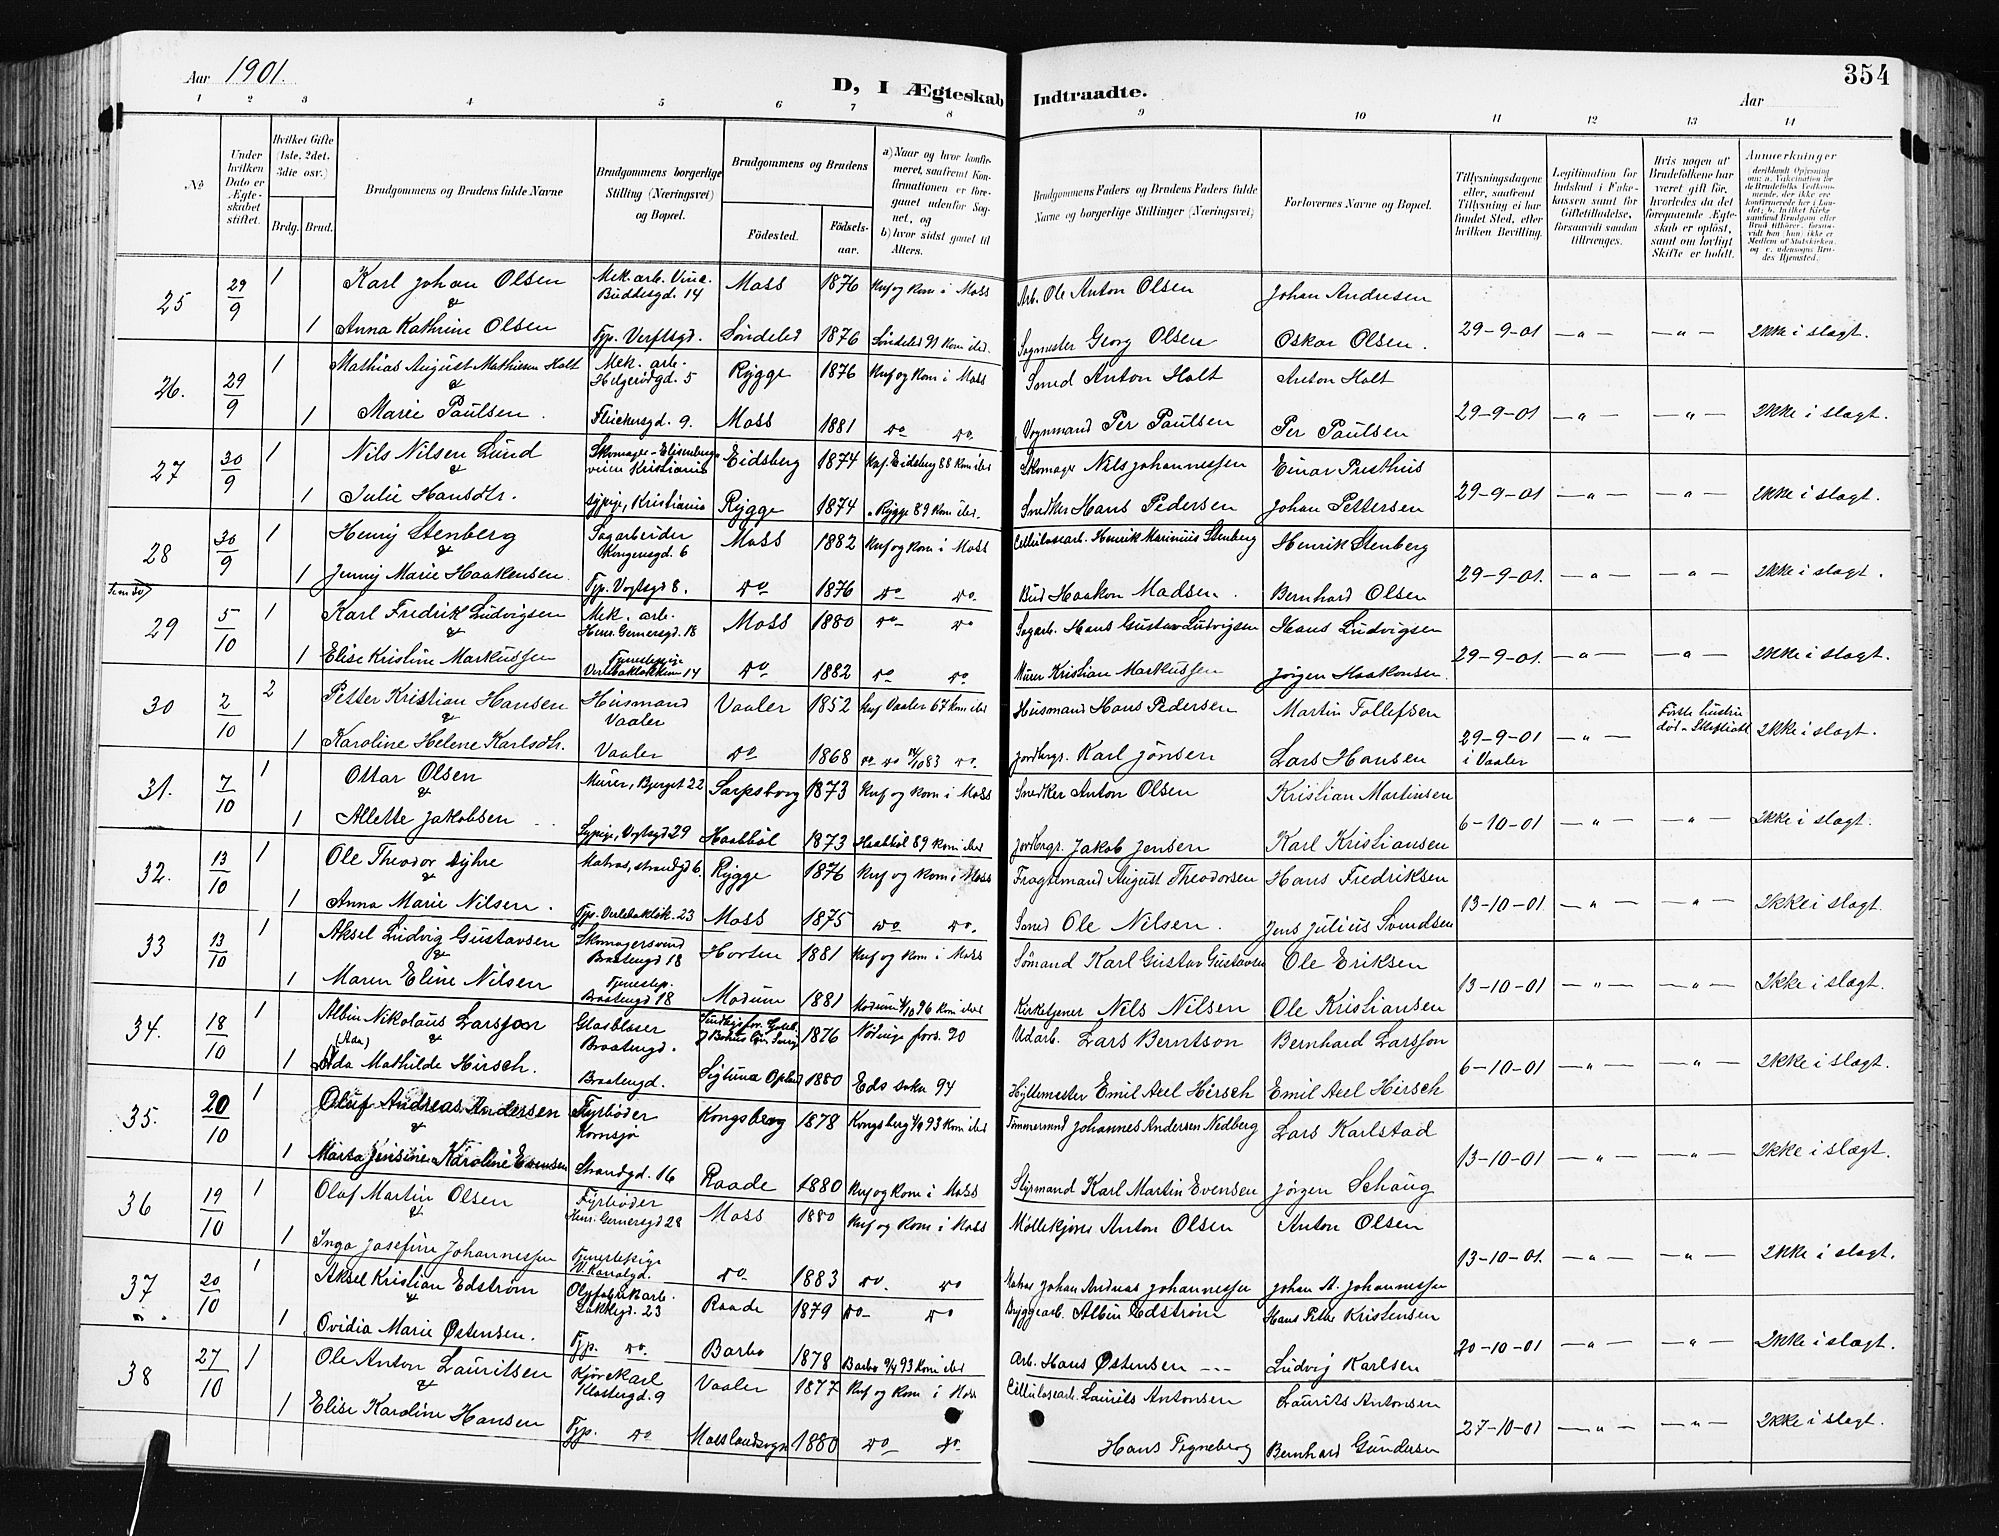 Aar 1901.
D, I Ægteskab Indtraadte.
354
Aar
1 2 3 4 5 6 7 8 9 10 11 12 13 14
No
Under hvilken Dato er Ægteskabet stiftet.
Hvilket Gifte (1ste, 2det, 3die osv.)
Brdg. Brud.
Brudgommens og Brudens fulde Navne
Brudgommens borgerlige Stilling (Næringsvei) og Bopæl.
Brudgommens og Brudens
Födested.
Födselsaar.
a) Naar og hvor konfirmeret, saafremt Konfirmationen er foregaaet udenfor Sognet, og
b) hvor sidst gaaet til Alters.
Brudgommens Faders og Brudens Faders fulde Navne og borgerlige Stillinger (Næringsvei)
Forlovernes Navne og Bopæl.
Tillysningsdagene eller, saafremt Tillysning ei har fundet Sted, efter hvilken Bevilling.
Legitimation for Indskud i Enkekassen samt for Giftetilladelse, forsaavidt saadan tiltrænges.
Hvis nogen af Brudefolkene har været gift før, hvorledes da det foregaaende Ægteskab er opløst, samt om lovligt Skifte er holdt.
Anmærkninger
25 29/9 1 Karl Johan Olsen Mek. arb. Vinc. Buddesgd. 14 Moss 1876 Knf og kom i Moss Arb. Ole Anton Olsen Johan Andresen
&
1 Anna Kathrine Olsen Tjp. Verftsgd. Søndeled 1876 Søndeled 91 kom ibd. Sagmester Georg Olsen Oskar Olsen. 29-9-01 — " — — " — Ikke i slægt.
26. 29/9 1 Mathias August Mathisen Holt Mek. arb. Helgerødgd. 5 Rygge 1876 Knf og kom i Moss Smed Anton Holt Anton Holt
&
1 Marie Paulsen. Fleischersgd. 9. Moss 1881 do do Vognmand Per Paulsen Per Paulsen 29-9-01 — " — — " — Ikke i slægt.
27 30/9 1 Nils Nilsen Lund Skomager Elisenbergveien Kristiania Eidsberg 1874 Knf. Eidsberg 88 kom ibd Skomager Nils Johannessen Einar Presthus
&
1 Julie Hansdtr. Sypige, Kristiania Rygge 1874 " Rygge 89 kom ibd. Snedker Hans Pedersen Johan Pettersen 29-9-01 — " — — " — Ikke i slægt.
28 30/9 1 Henry Stenberg Sagarbeider Kongensgd. 6 Moss 1882 Knf og kom i Moss Cellulosearb. Henrik Marinius Stenberg Henrik Stenberg
&
1 Jenny Marie Haakensen. Tjp. Vogtsgd 8. do 1876 do do Bud Haakon Madsen. Bernhard Olsen 29-9-01. — " — — " — Ikke i slægt.
29 5/10 1 Karl Fredrik Ludvigsen Mek. arb. Henr. Gernersgd. 18 Moss 1880 do do Sagarb. Hans Gustav Ludvigsen Hans Ludvigsen
&
1 Elise Kristine Markussen Tjenestepige Verlebakløkken 14 do 1882 do do Murer Kristian Markussen Jørgen Haakonsen. 29-9-01. — " — — " — Ikke i slægt.
30 2/10 2 Petter Kristian Hansen Husmand Vaaler Vaaler 1852 Knf Vaaler 67 kom ibd Husmand Hans Pedersen Martin Tollefsen Første hustru død - Skifteatt.
&
1 Karoline Helene Karlsdtr. Vaaler do 1868 do do 14/10 83 do. Jordbrgs. Karl Jönsen Lars Hansen 29-9-01 i Vaaler — " — Ikke i slægt.
31. 7/10 1 Ottar Olsen Murer, Bjerget 22 Sarpsborg 1873 Knf og kom i Moss Snedker Anton Olsen Kristian Martinsen
&
1 Allette Jakobsen Sypige, Vogtsgd 29 Haabböl 1873 Haabböl 89 kom ibd Jordbrgr. Jakob Jensen Karl Kristiansen 6-10-01 — " — — " — Ikke i slægt.
32. 13/10 1 Ole Theodor Syhre Matros, Strandgd 6. Rygge 1876 Knf og kom i Moss Fragtemand August Theodorsen Hans Fredriksen
&
1 Anna Marie Nilsen. Tjp. Verlebakløk. 23 Moss 1875 do do. Smed Ole Nilsen. Jens Julius Svendsen 13-10-01. — " — — " — Ikke i slægt.
33 13/10 1 Aksel Ludvig Gustavsen Skomagersvend Braatengd 18 Horten 1881 Knf og kom i Moss Sömand Karl Gustav Gustavsen Ole Eriksen
&
1 Maren Eline Nilsen Tjenestep. Braatengd 18 Modum 1881 Modum 4/10 96 kom ibd Kirketjener Nils Nilsen Ole Kristiansen 13-10-01 — " — — " — Ikke i slægt.
34. 18/10 1 Albin Nikolaus Larsson Glasblæser Braatengd. 1876 Nödinge fors. 90 Udarb. Lars Berntson Bernhard Larsson
&
1 Ida Mathilde Hirsch. Braatengd. Sigtuna Opland 1880 Eds sokn 94 Hyttemester Emil Axel Hirsch Emil Axel Hirsch 6-10-01 — " — — " — Ikke i slægt.
35. 20/10 1 Oluf Andreas Andersen Fyrbøder Kornsjø Kongsberg 1878 Kongsberg 1/10 93 kom ibd Tömmermnd Johannes Andersen Nedberg Lars Karlstad
&
1 Marta Jensine Karoline Evensen Strandgd. 16 Raade 1880 Knf og kom i Moss Styrmand Karl Martin Evensen Jørgen Schaug 13-10-01 — " — — " — Ikke i slægt.
36 19/10 1 Olaf Martin Olsen Fyrbøder Henr. Gernersgd 28 Moss 1880 Knf og kom i Moss Møllekjører Anton Olsen Anton Olsen
&
1 Inga Josefine Johannessen Tjenestepige V. Kanalgd. do 1883 do. do Matros Johan Andreas Johannessen Johan A. Johannessen 13-10-01. — " — — " — Ikke i slægt.
37 20/10 1 Aksel Kristian Edstrøm Oljefabrikarb. Bakkegd. 23 Raade 1879 do do Byggearb. Albin Edstrøm Hans Petter Kristensen
&
1 Ovidia Marie Østensen. Tjp. do. Barbo 1878 Barbo 9/4 93 kom ibd Arb. Hans Østensen Ludvig Karlsen 20-10-01 — " — — " — Ikke i slægt.
38 27/10 1 Ole Anton Lauritsen Kjørekarl Klostergd. 9 Vaaler 1877 Knf og kom i Moss Cellulosearb. Laurits Antonsen Laurits Antonsen
&
1 Elise Karoline Hansen Tjp. do Moss landsogn 1880 do do. Hans Tegneberg Bernhard Gundersen 27-10-01 — " — — " — Ikke i slægt.